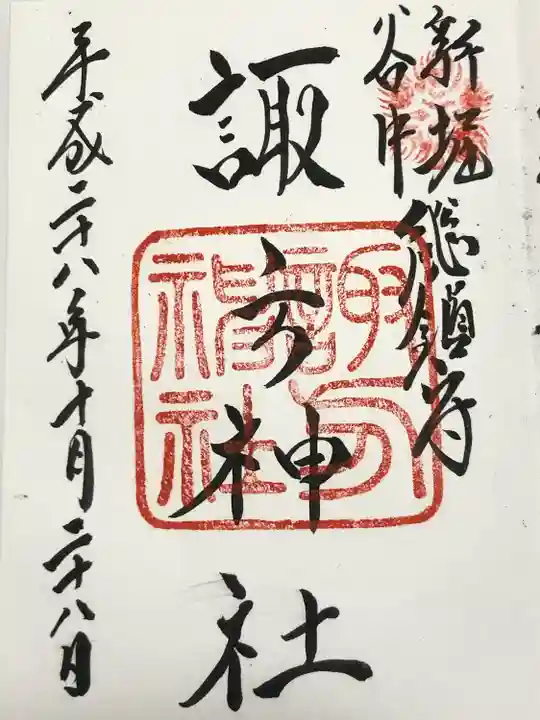 新堀
谷中
総鎮守
諏方神社
平成二十八年十月二十八日
諏方神社